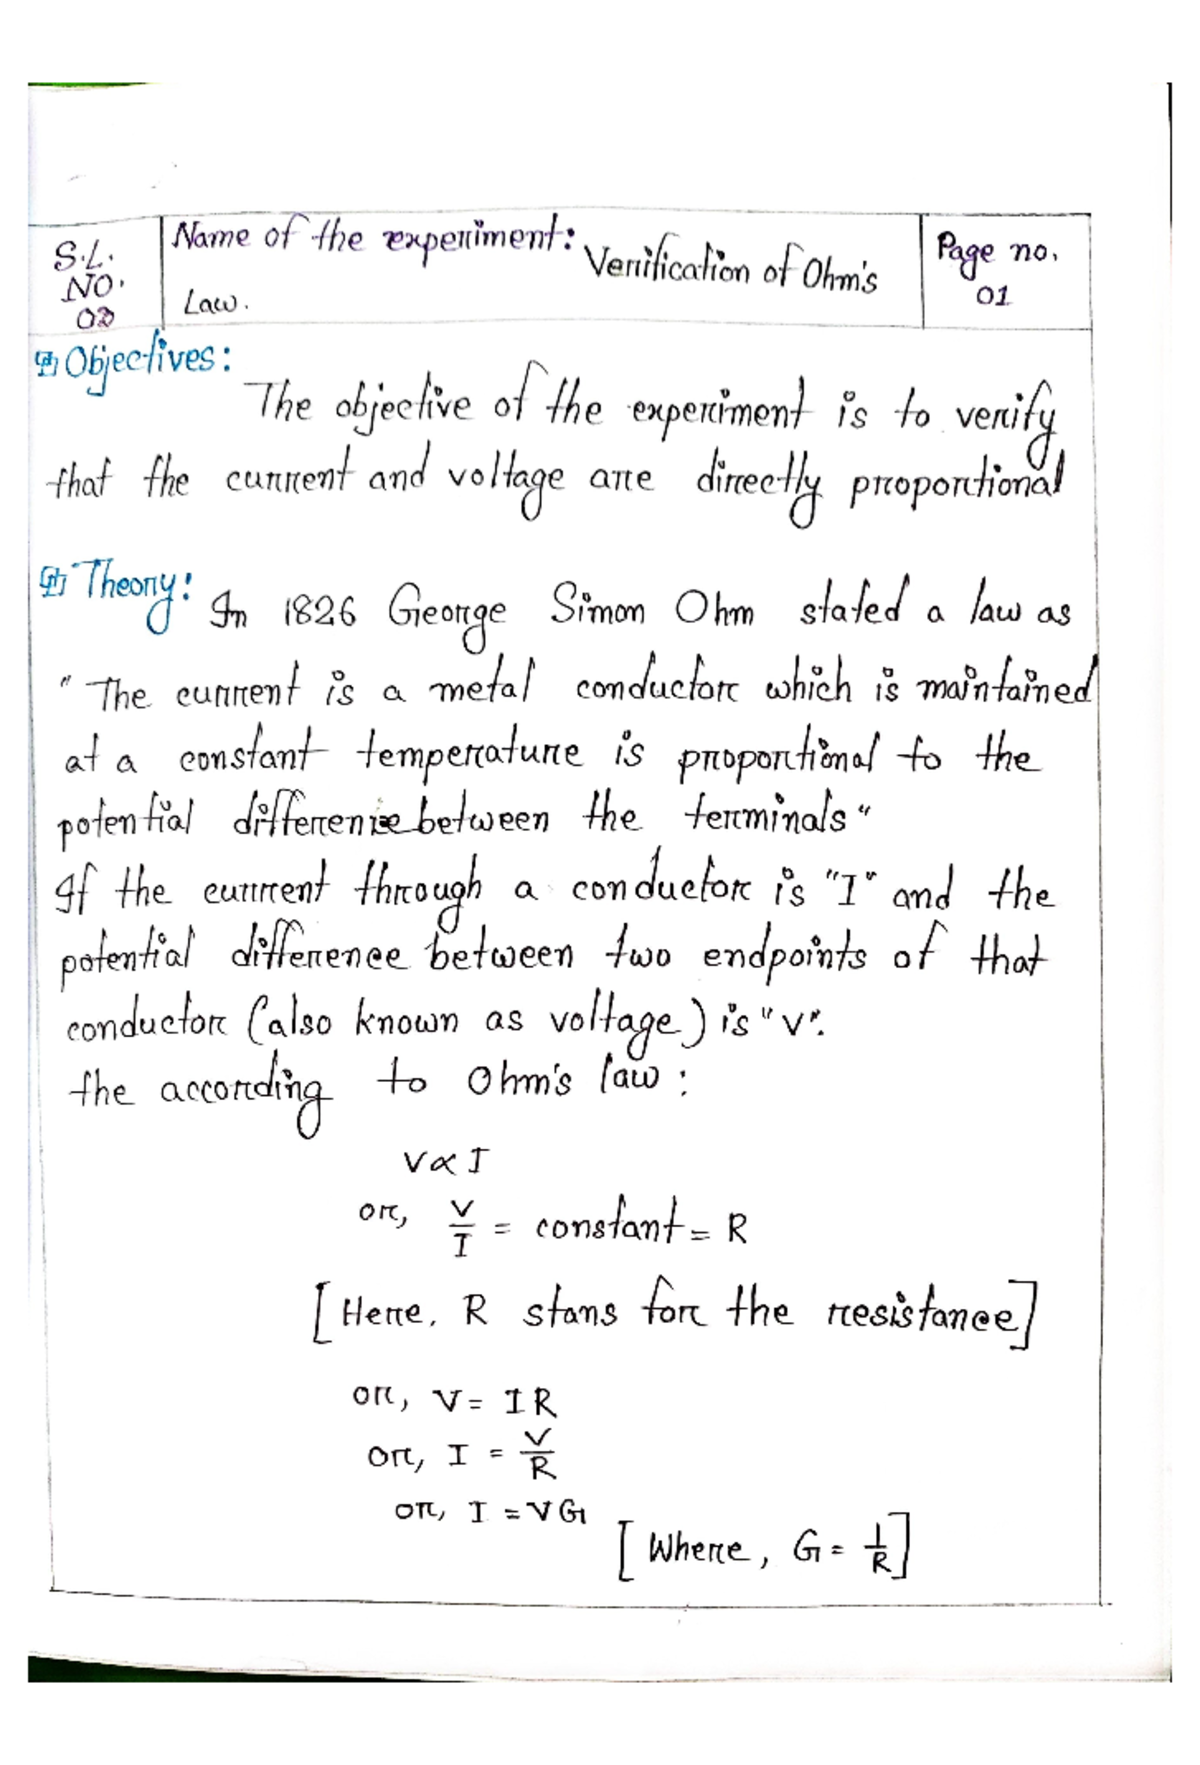 S.L. NO. 02
Name of the experiment: Verification of Ohm's
Law.
Page no. 01
Objectives:
The objective of the experiment is to verify
that the current and voltage are directly proportional
Theory: In 1826 George Simon Ohm stated a law as
"The current is a metal conductor which is maintained
at a constant temperature is proportional to the
potential difference between the terminals"
If the current through a conductor is "I" and the
potential difference between two endpoints of that
conductor (also known as voltage) is "V".
the according to Ohm's law:
V ∝ I
or, V/I = constant = R
[Here, R stans for the resistance]
or, V = IR
or, I = V/R
or, I = VG
[Where, G = 1/R]